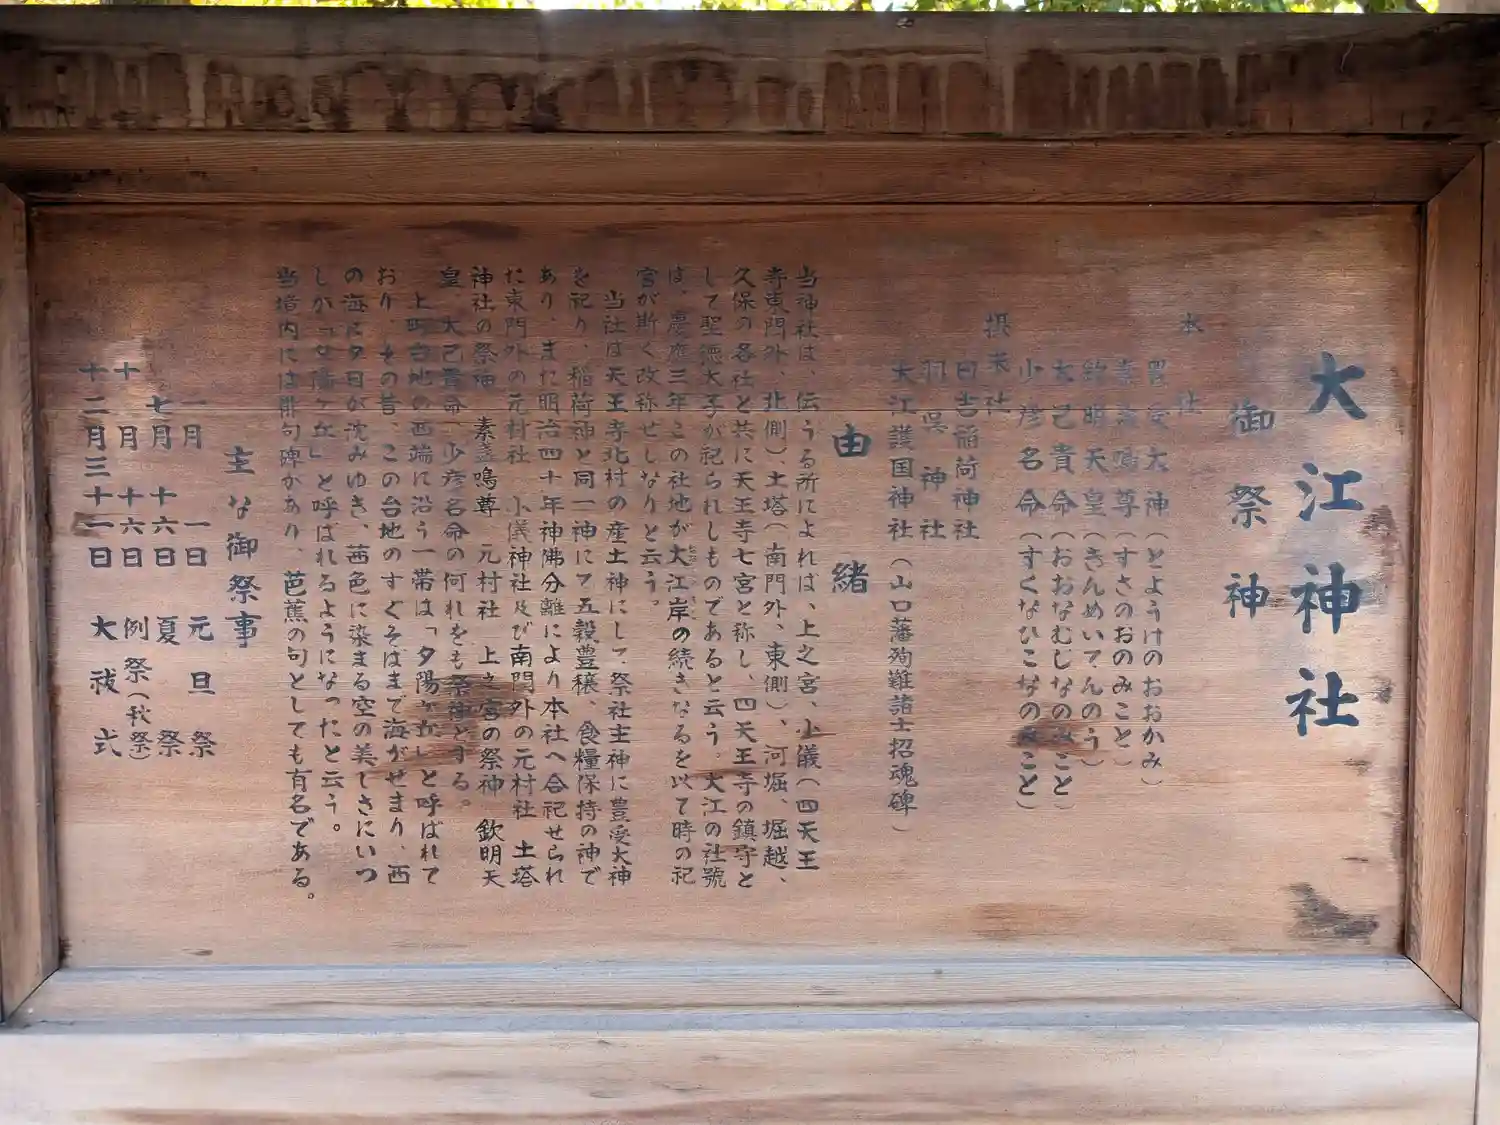 大江神社
御祭神
本社
豊受大神(とようけのおおかみ)
素盞嗚尊(すさのおのみこと)
欽明天皇(きんめいてんのう)
大己貴命(おおなむじなのみこと)
少彦名命(すくなひこなのみこと)
摂末社
日吉稲荷神社
羽呉神社
大江護国神社(山口藩殉難諸士招魂碑)
由緒
当神社は、伝うる所によれば、上之宮、小儀(四天王
寺東門外、北側)、土塔(南門外、東側)、河堀、堀越、
久保の各社と共に天王寺七宮と称し、四天王寺の鎮守と
して聖徳太子が祀られしものであると云う。大江の社號
は、慶應三年この社地が大江岸の続きなるを以て時の祀
宮が斯く改称せしなりと云う。
当社は天王寺北村の産土神にして、祭社主神に豊受大神
を祀り、稲荷神と同一神にて五穀豊穣、食糧保持の神で
あり、また明治四十年神佛分離により本社へ合祀せられ
た東門外の元村社 小儀神社及び南門外の元村社 土塔
神社の祭神 素盞嗚尊 元村社 上之宮の祭神 欽明天
皇、大己貴命、少彦名命の何れをも祭神とする。
上町台地の西端に沿う一帯は「夕陽ヶ丘」と呼ばれて
おり、その昔、この台地のすぐそばまで海がせまり、西
の海に夕日が沈みゆき、茜色に染まる空の美しさにいつ
しか「夕陽ヶ丘」と呼ばれるようになったと云う。
当境内には俳句碑があり、芭蕉の句としても有名である。
主な御祭事
一月 一日 元旦祭
七月 十六日 夏祭
十月 十六日 例祭(秋祭)
十二月三十一日 大祓式